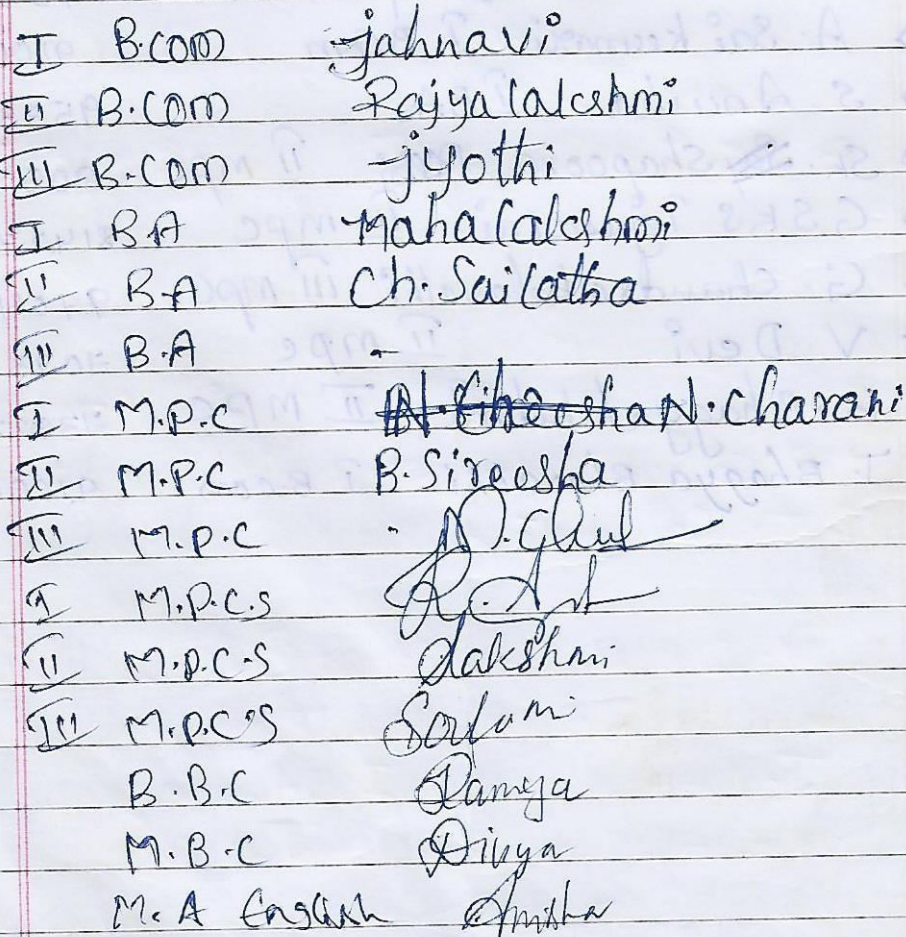 I B.com jahnavi
II B.Com Rajyalakshmi
III B.Com jyothi
I BA Mahalakshmi
II B.A Ch. Sailatha
III B.A -
I M.P.C N. Charani
II M.P.C B. Sireesha
III M.P.C
I M.P.C.S
II M.P.C.S Lakshmi
III M.P.C.S
B.B.C Ramya
M.B.C Divya
M.A English Anisha